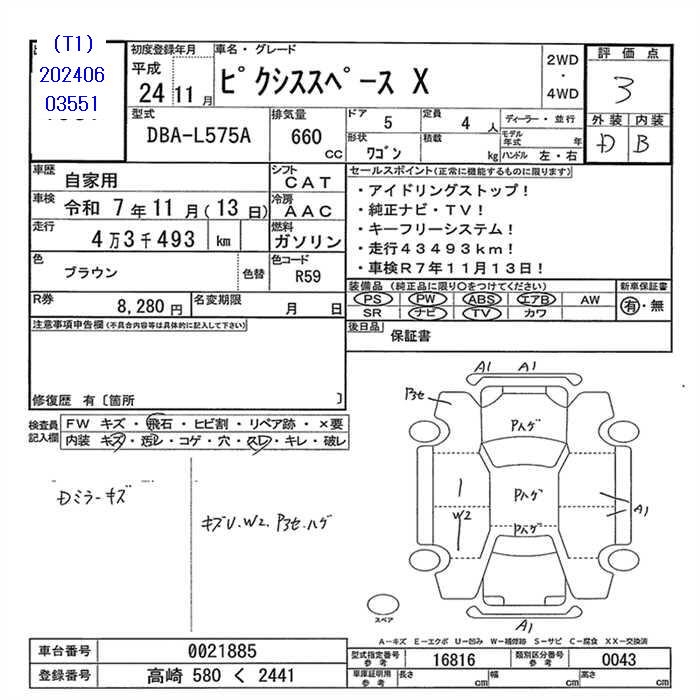 (T1)
202406
03551
初度登録年月
平成
24 11月
車名・グレード
ピクシススペース X
2WD
・
4WD
評価点
3
外装 内装
D B
型式
DBA-L575A
排気量
660
CC
ドア 5
定員 4 人
形状 ワゴン
積載 kg
ディーラー・並行
モデル年式 年
ハンドル 左・右
車歴 自家用
シフト CAT
車検 令和 7年11月(13日)
冷房 AAC
走行 4万3千493 km
燃料 ガソリン
色 ブラウン 色替
色コード R59
R券 8,280円
名変期限 月 日
セールスポイント(正常に機能するものに限ります)
・アイドリングストップ!
・純正ナビ・TV!
・キーフリーシステム!
・走行43493km!
・車検R7年11月13日!
装備品 (純正品に限り○をつけてください)
PS PW ABS エアB AW
SR ナビ TV カワ
新車保証書
有・無
後日品 保証書
注意事項申告欄(不具合内容等は具体的に記入して下さい)
修復歴 有〔箇所 〕
検査員記入欄
FW キズ・飛石・ヒビ割・リペア跡・×要
内装 キズ・汚レ・コゲ・穴・スレ・キレ・破レ
Dミラーキズ
キズU、W2、P3セ、ハゲ
A1 A1
P3セ
Pハゲ
Pハゲ
Pハゲ
W2
A1
A1
スペア
A-キズ E-エクボ U-凹み W-補修跡 S-サビ C-腐食 XX-交換済
車台番号 0021885
登録番号 高崎 580 く 2441
型式指定番号 参考 16816
類別区分番号 参考 0043
車庫証明用 参考 長さ cm 幅 cm 高さ cm